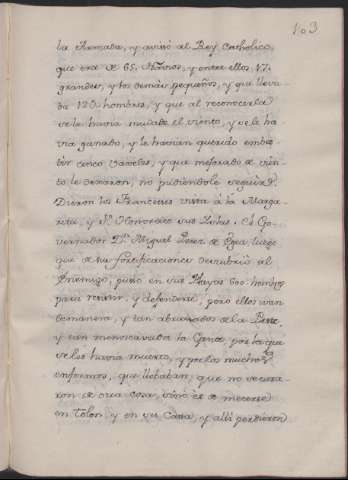 103
la Armada, y avisó al Rey Catholico,
que era de 65. Navios, y entre ellos 47.
grandes, y los demàs pequeños, y que lleva-
ba 120 hombres, y que al reconocerla
se le havia mudado el viento, y se le ha-
via ganado, y le havian querido embes-
tir cinco Vaxeles, y que mejorado de vien-
to le dexaron, no pudiendole seguir.
Dieron los Franceses vista à la Marga-
rita, y Sn. Honorato sus Yslas. El Go-
vernador Dn. Miguel Perez de Egea, luego
que de su fortificaciones descubriò al
Enemigo, puso en sus Playas 600 hombres
para resistir, y defenderse, pero ellos iban
de manera, y tan abrasados de la Peste,
y tan menoscavada la Gente, por la que
se les havia muerto, y por los muchos
enfermos, que llebaban, que no se trata-
ron de otra cosa, sino es de meterse
en Tolon y en su Casa, y alli perdieron